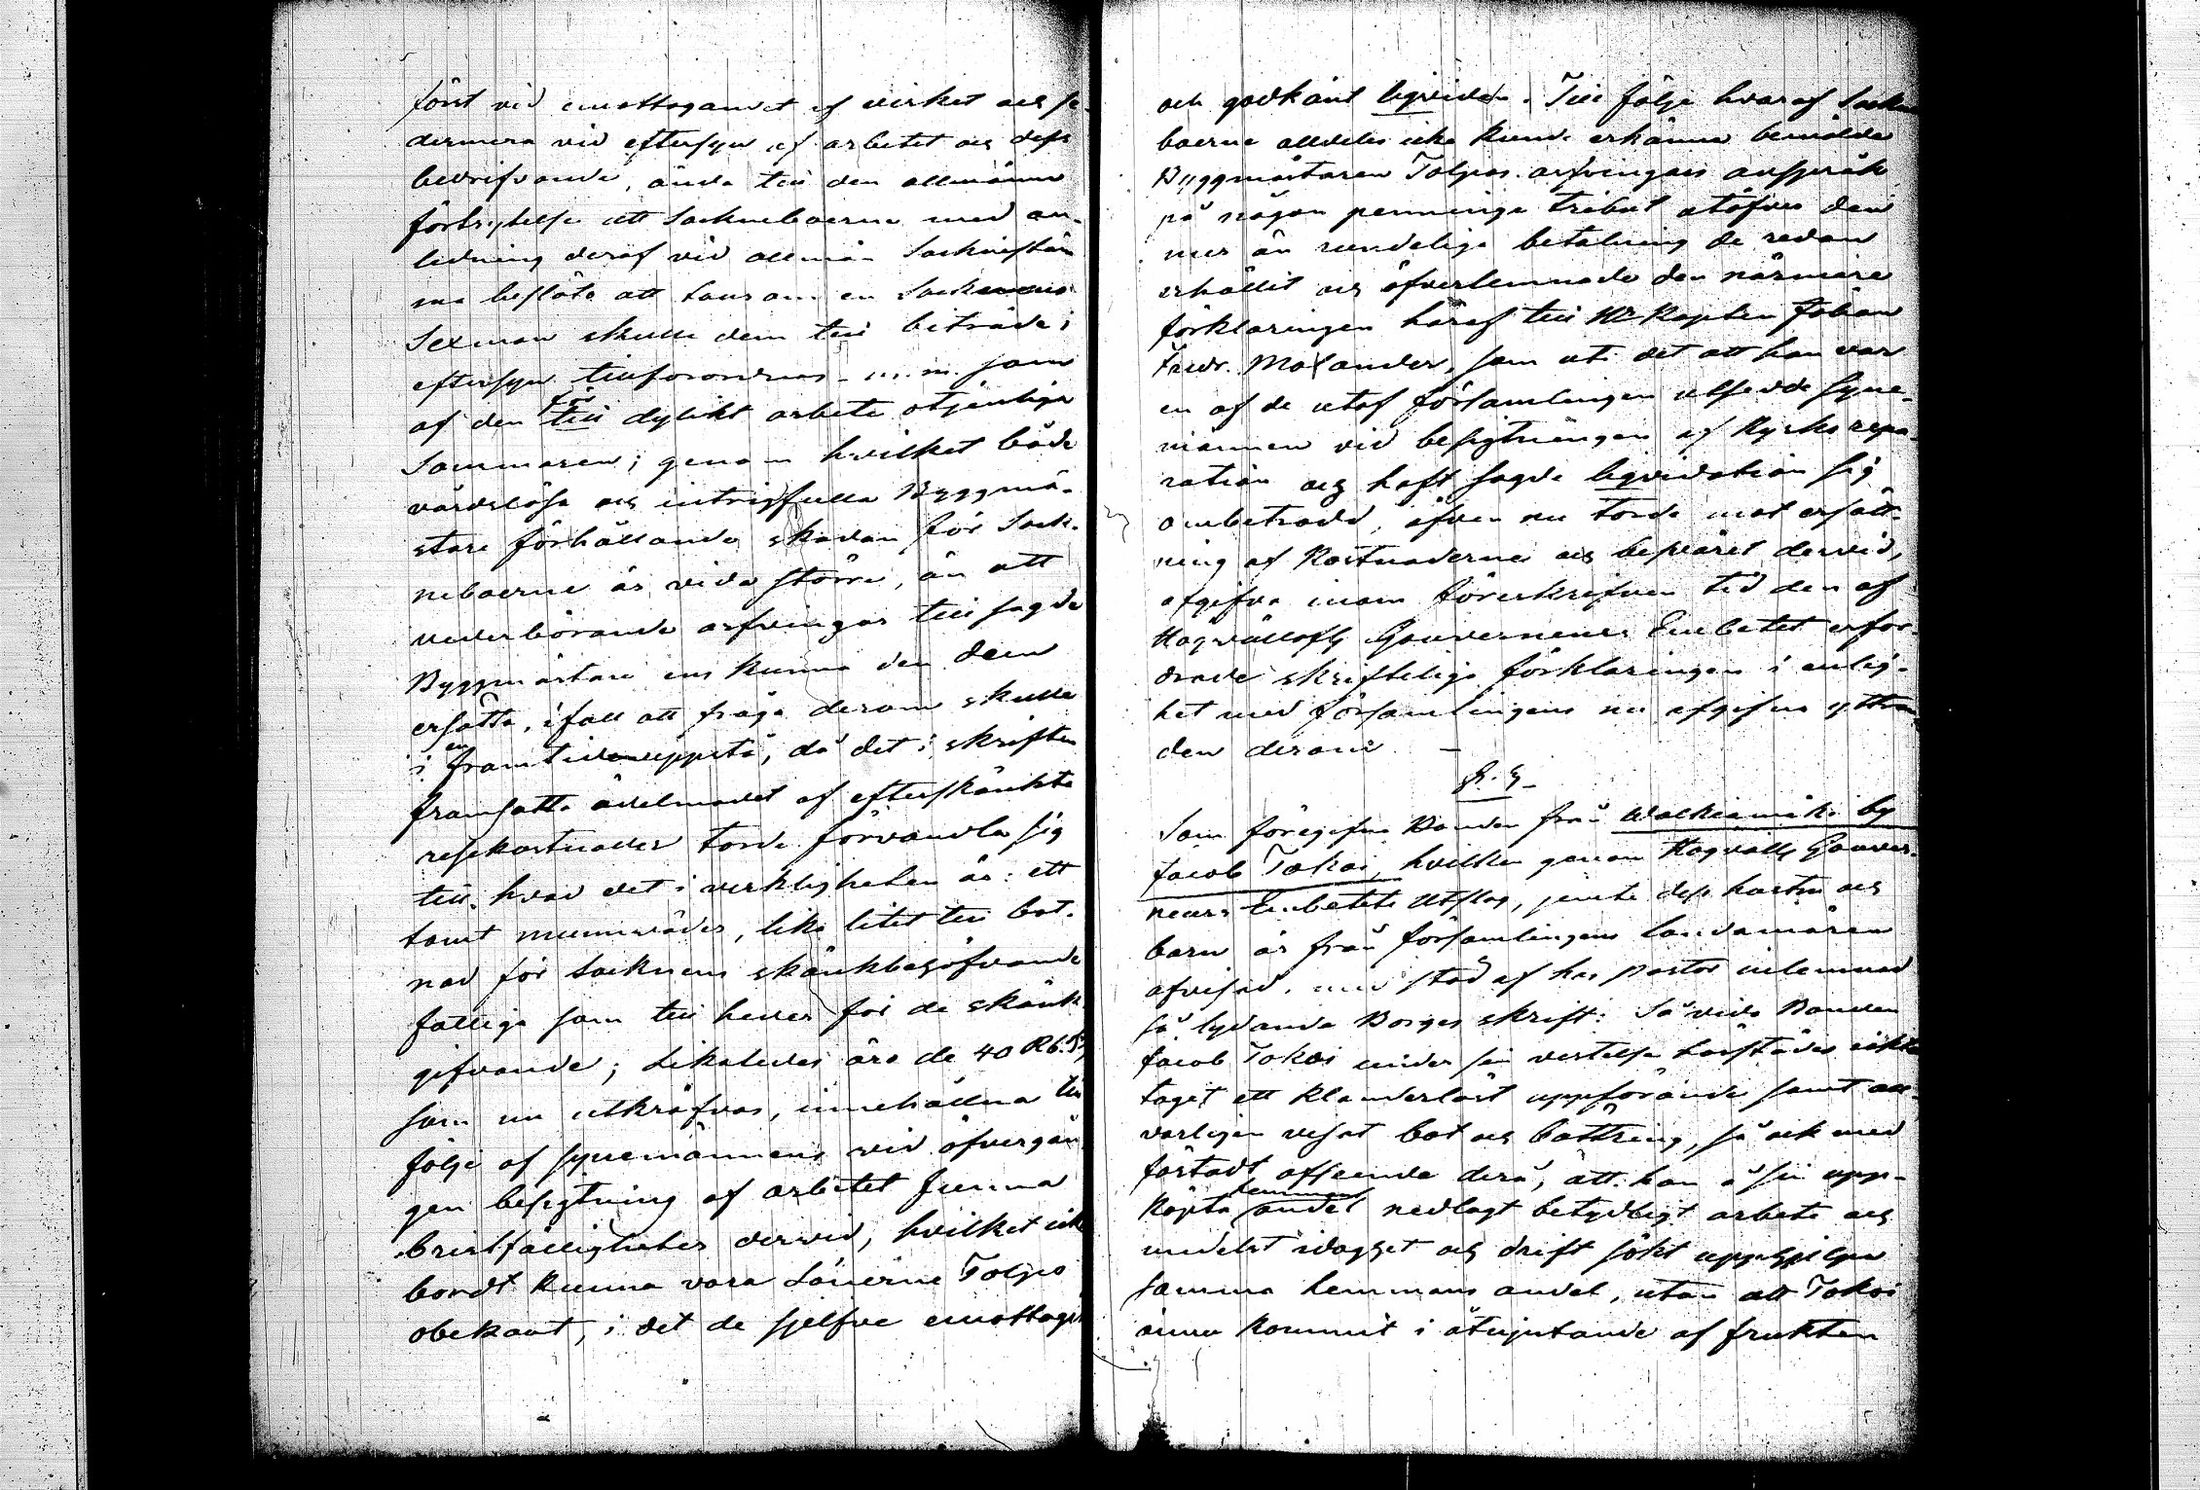 först vid emottagandet af virket och se-
dermera vid eftersyn af arbetet och dess
bedrifvande, ända till den allmänna
förbrytelse att Sockneboerne med an-
ledning deraf vid allmän Socknestäm
ma beslöto att Länsman en Socknens
Sexman skulle dem till biträde i
eftersyn tillforordnas m. m. som
af den för till dylikt arbete otjenliga
Sommaren; genom hvilket både
vårdslösa och intrigfulla Byggmä-
stare förhållande skadan för Sock-
neboerne är vida större, än att
vederbörande arfvingar till sagde
Byggmästare ens kunna den dem
ersätta, ifall att fråga derom skulle
i en framtid uppstå, då det i skriften
framsatta ädelmodet af efterskänkte
resekostnader torde förvandla sig
till hvad det i verkligheten är: ett
tomt munväder, lika litet till bot-
nad för Socknens skänkbehöfvande
fattige som till heder för de skänk
gifvande; Likaledes äro de 40 Rb. S
som nu utkräfvas, innehållna till
följe af synemännens vid öfvergån
gen besigtning af arbetet funna
bristfälligheter dervid, hvilket icke
bordt kunna vara Sönerne Tolpo
obekant, i det de sjelfve emottagit
och godkänt liqviden. Till följe hvaraf Sockne
boerne alldeles icke kunde erkänna bemälde
Byggmästaren Tolpos arfvingars anspråk
på någon penninge tribut utöfver den
mer än rundeliga betalning de redan
erhållit och öfverlemnade den närmare
förklaringen häraf till Hr Kapten Johan
Fredr. Molander, som uti det att han var
en af de utaf församlingen utsedde syne-
männen vid besigtningen af Kyrko repa-
ration och haft sagde liqvidation sig
ombetrodd, äfven nu torde mot ersätt-
ning af Kostnaderne och besväret dervid,
afgifva inom föreskrifven tid den af
Högvällofl Gouverneurs Embetet erfor-
drade skriftelige förklaringen i enlig-
het med församlingens nu afgifna yttran
den derom. —
§. 3
Som föregifne Bonden från Walkiamäki by
Jacob Tokoi, hvilken genom Högvällofl Gouver-
neurs Embetets Utslag, jemte dess hustru och
barn är från församlingens landamären
afvisad, med stöd af hos Pastor inlemnad
så lydande Borges skrift: Så vida Bonden
Jacob Tokoi under sin vistelse härstädes iakt
taget ett klanderlöst uppförande samt all-
varligen visat bot och bättring, så ock med
fästadt afseende derå, att han å sin upp-
köpta hemmans andel nedlagt betydligt arbete och
medelst idoghet och drift sökt upphjelpa
samma hemmans andel, utan att Tokoi
ännu kommit i åtnjutande af frukten